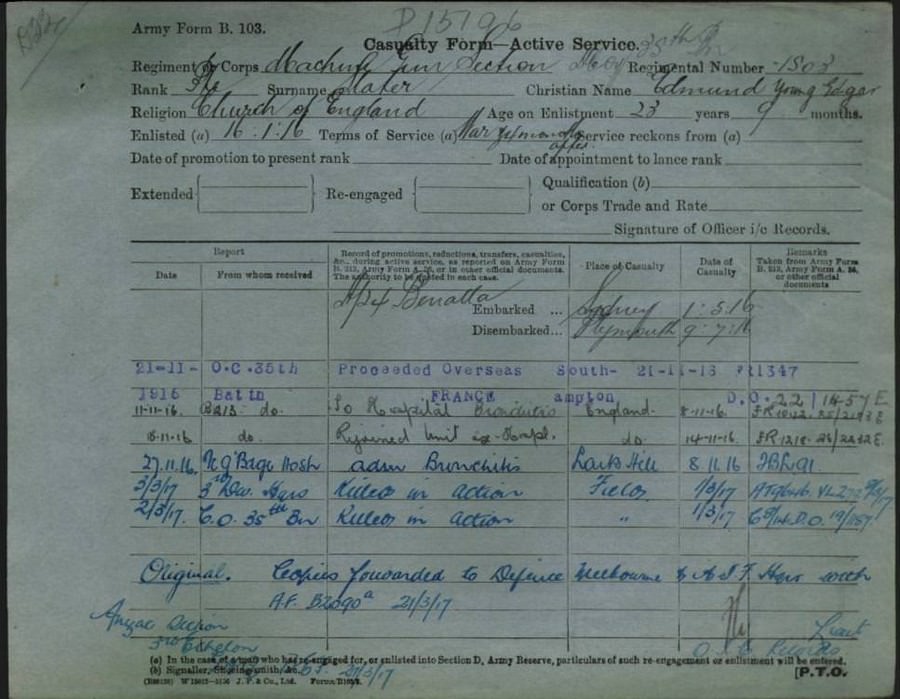 D15196
Army Form B. 103.
Casualty Form—Active Service.
35th Bn
Regiment or Corps Machine Gun Section Regimental Number 1503
Rank Pte Surname Slater Christian Name Edmund Young Edgar
Religion Church of England Age on Enlistment 23 years 9 months.
Enlisted (a) 16.1.16 Terms of Service (a) War & months after Service reckons from (a)
Date of promotion to present rank Date of appointment to lance rank
Extended Re-engaged Qualification (b)
or Corps Trade and Rate
Signature of Officer i/c Records.
Report
Date From whom received
Record of promotions, reductions, transfers, casualties, &c., during active service, as reported on Army Form B. 213, Army Form A. 36, or in other official documents. The authority to be quoted in each case.
Place of Casualty
Date of Casualty
Remarks
Taken from Army Form B. 213, Army Form A. 36, or other official documents
Benalla
Embarked ... Sydney 1.5.16
Disembarked... Plymouth 9.7.16
21-11- O.C.35th Proceeded Overseas South- 21-11-16 FR1347
1916 Battn FRANCE ampton D.O.22/1457 E
11-11-16. B213 do. To Hospital Bronchitis England. 8-11-16.
18-11-16 do. Rejoined Unit ex-Hospl. do. 14-11-16.
27.11.16. Hosp adm Bronchitis Lark Hill 8.11.16
3/3/17 3rd Div. Hqrs Killed in action Field 1/3/17
2/3/17. C.O. 35th Bn Killed in action " 1/3/17
Original. Copies forwarded to Defence Melbourne & A.I.F. Hqrs with
A.F. B2090a 21/3/17
Anzac Section
3rd Echelon
Lieut
Records
21/3/17
(a) In the case of a man who has re-engaged for, or enlisted into Section D, Army Reserve, particulars of such re-engagement or enlistment will be entered.
(b) Signaller, Shoeing-smith, &c.
[P.T.O.